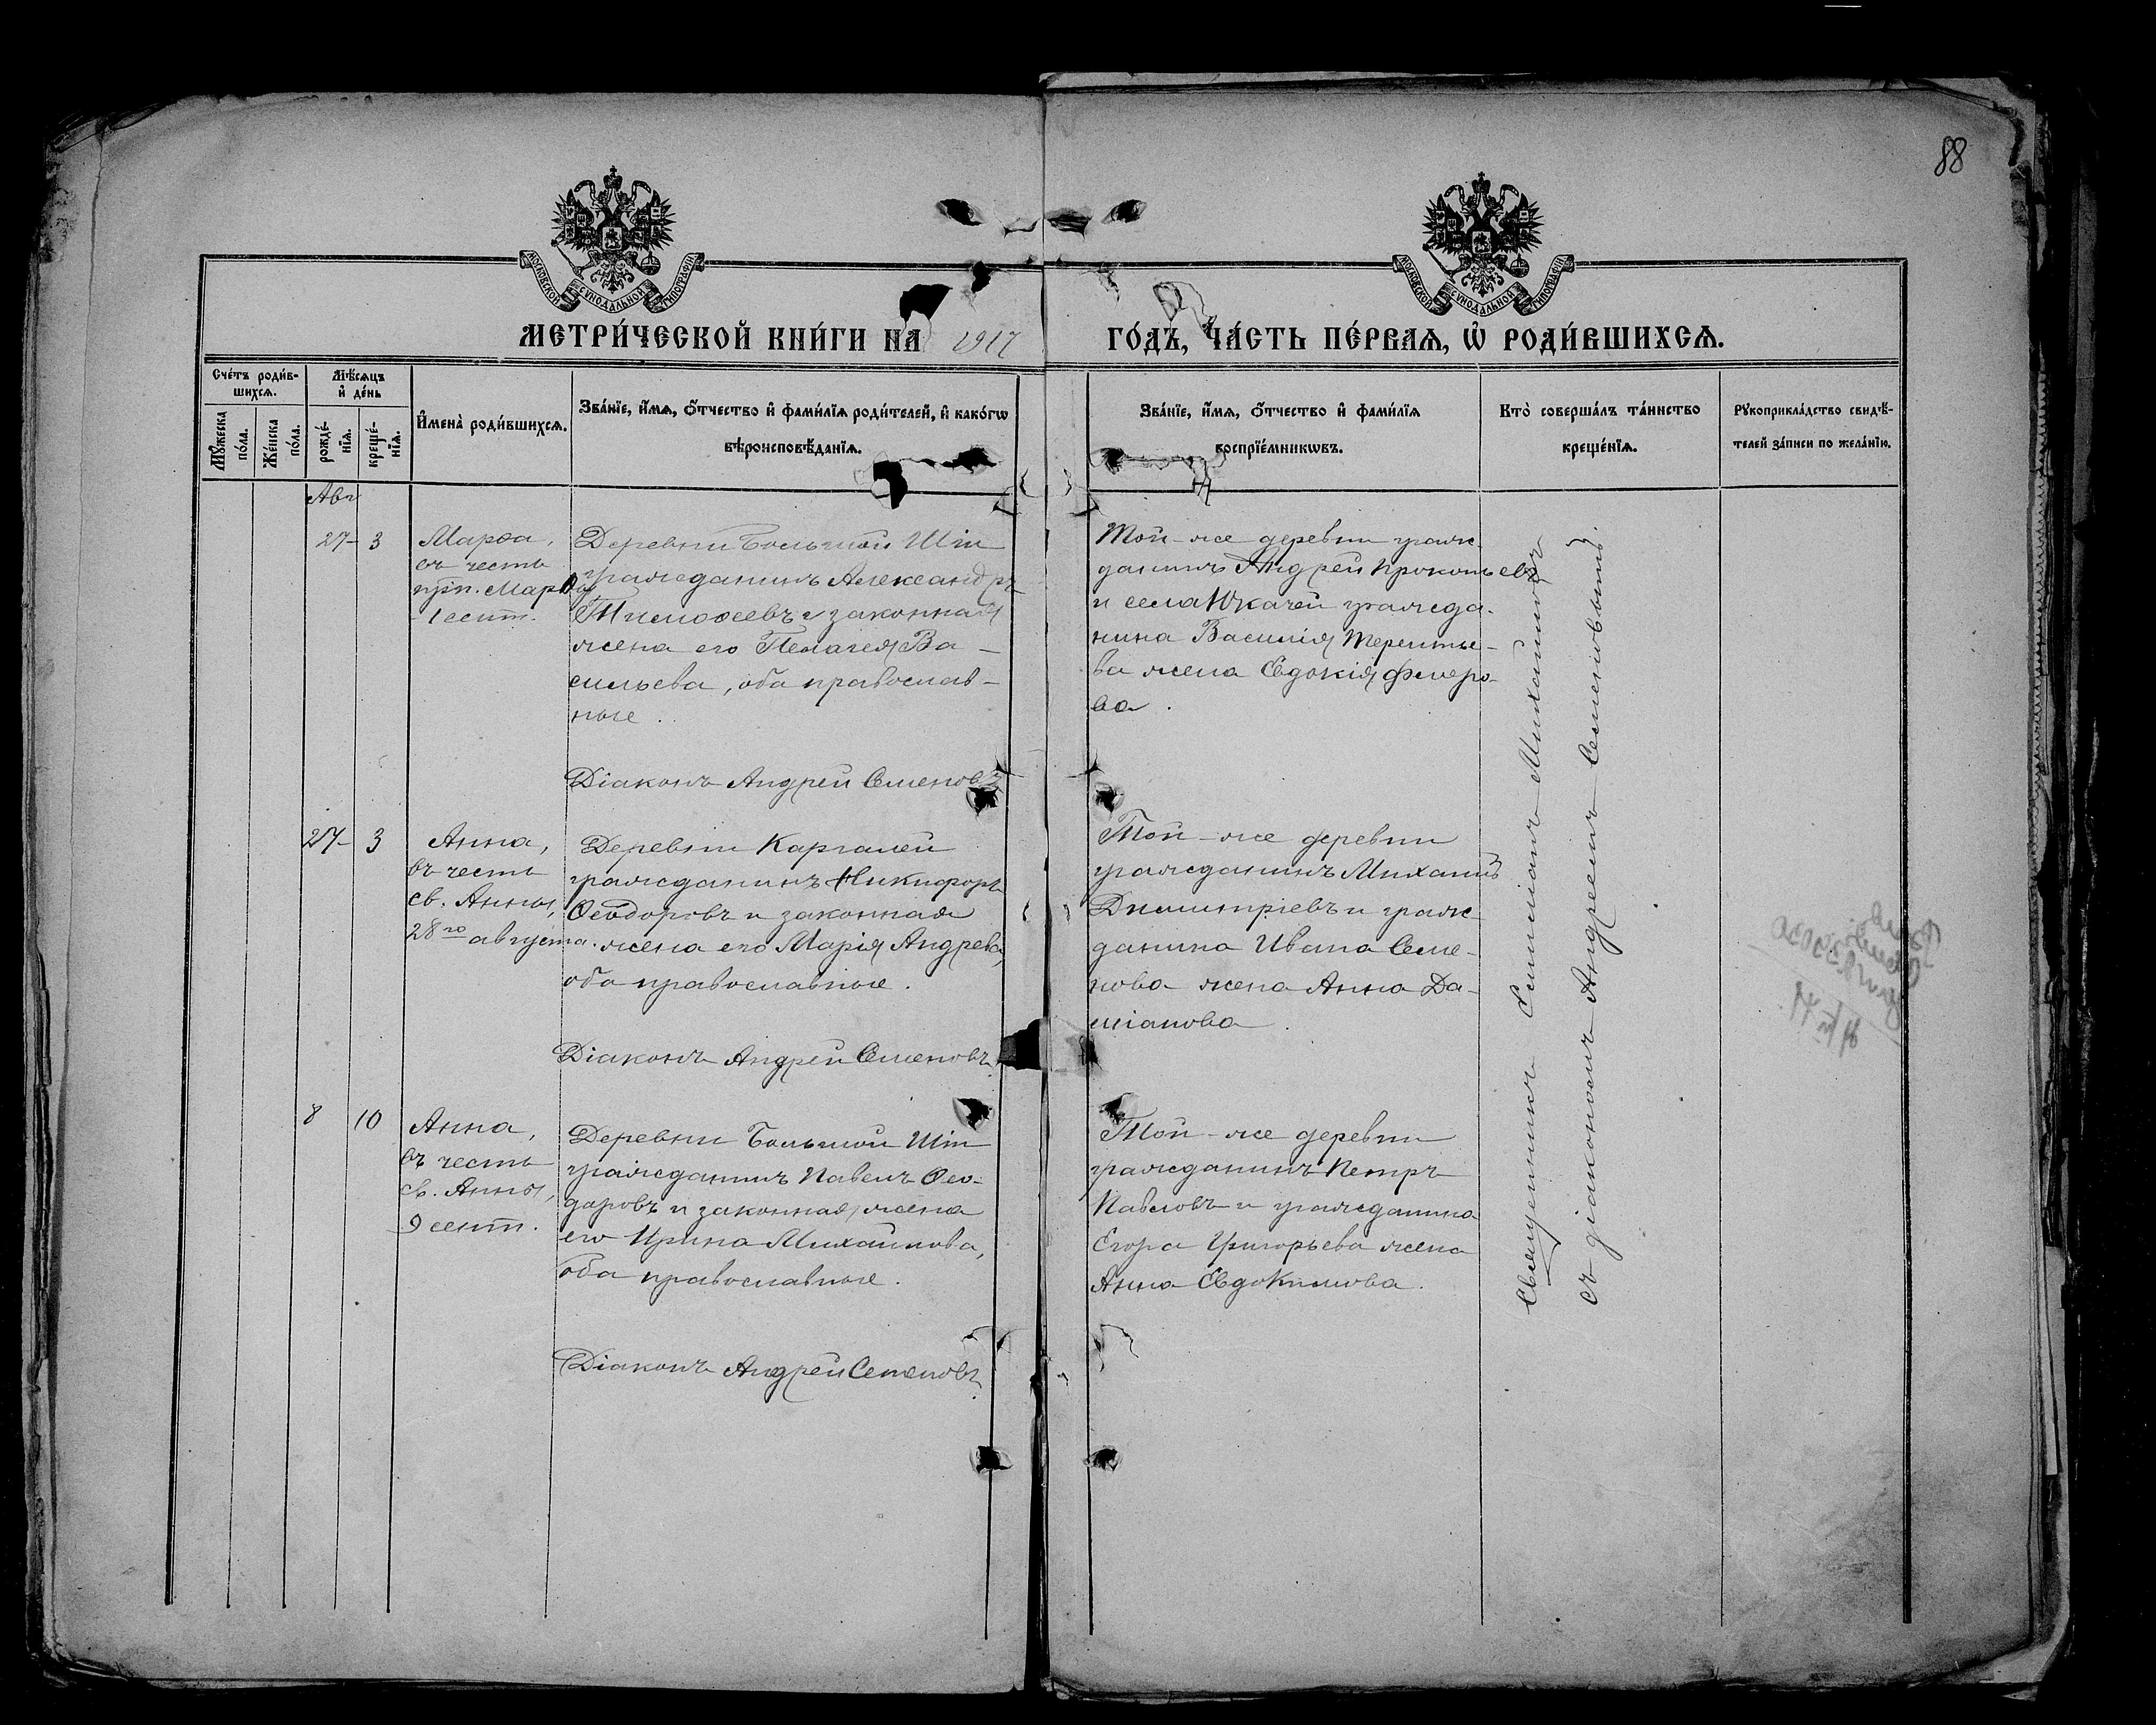 88
МОСКОВСКОЙ СУНОДАЛЬНОЙ ТИПОГРАФІИ
МОСКОВСКОЙ СУНОДАЛЬНОЙ ТИПОГРАФІИ
МЕТРИ́ЧЕСКОЙ КНИ́ГИ НА 1917 ГО́ДЪ, ЧА́СТЬ ПЕ́РВАЯ, Ѡ҆ РОДИ́ВШИХСЯ.
Сче́тъ роди́в-
шихся.
Мѣ́сяцъ
и҆ де́нь
Мꙋ́жеска
по́ла.
Же́нска
по́ла.
рожде́-
нїя.
креще́-
нїя.
И҆мена̀ роди́вшихся.
Зва́нїе, и҆́мя, ѻ҆́тчество и҆ фами́лїя роди́телей, и҆ како́гѡ
вѣроисповѣ́данїя.
Зва́нїе, и҆́мя, ѻ҆́тчество и҆ фами́лїя
воспрїе́мникѡвъ.
Кто̀ соверша́лъ та́инство
креще́нїя.
Рꙋкоприкла́дство свидѣ́-
телей за́писи по жела́нїю.
Авг
27- 3
Марѳа,
въ честь
прп. Марѳы
1 сент.
Деревни Большой Шіи
гражданинъ Александръ
Тимоѳеевъ и законная
жена его Пелагея Ва-
сильева, оба православ-
ные.
Діаконъ Андрей Семеновъ
Той-же деревни граж-
данинъ Андрей Прокопьевъ
и села Юкачей гражда-
нина Василія Терентье-
ва жена Евдокія
27- 3
Анна,
въ честь
св. Анны,
28го августа.
Деревни Каргалей
гражданинъ Никифоръ
Ѳеодоровъ и законная
жена его Марія Андреева,
оба православные.
Діаконъ Андрей Семеновъ.
Той-же деревни
гражданинъ Михаилъ
Димитріевъ и граж-
данина Ивана Семе-
нова жена Анна Да-
міанова.
8 10
Анна,
въ честь
св. Анны,
9 сент.
Деревни Большой Шіи
гражданинъ Павелъ Ѳео-
доровъ и законная жена
его Ирина Михайлова,
оба православные.
Діаконъ Андрей Семеновъ.
Той-же деревни
гражданинъ Петръ
Павловъ и гражданина
Егора Григорьева жена
Анна Евдокимова.
Священникъ Михайловъ
съ діакономъ Андреемъ Семеновымъ.